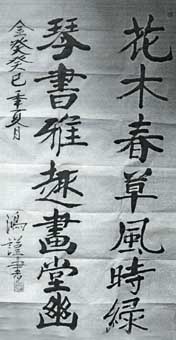 花木春草風時綠
琴書雅趣畫堂幽
癸巳夏月
鴻謹書